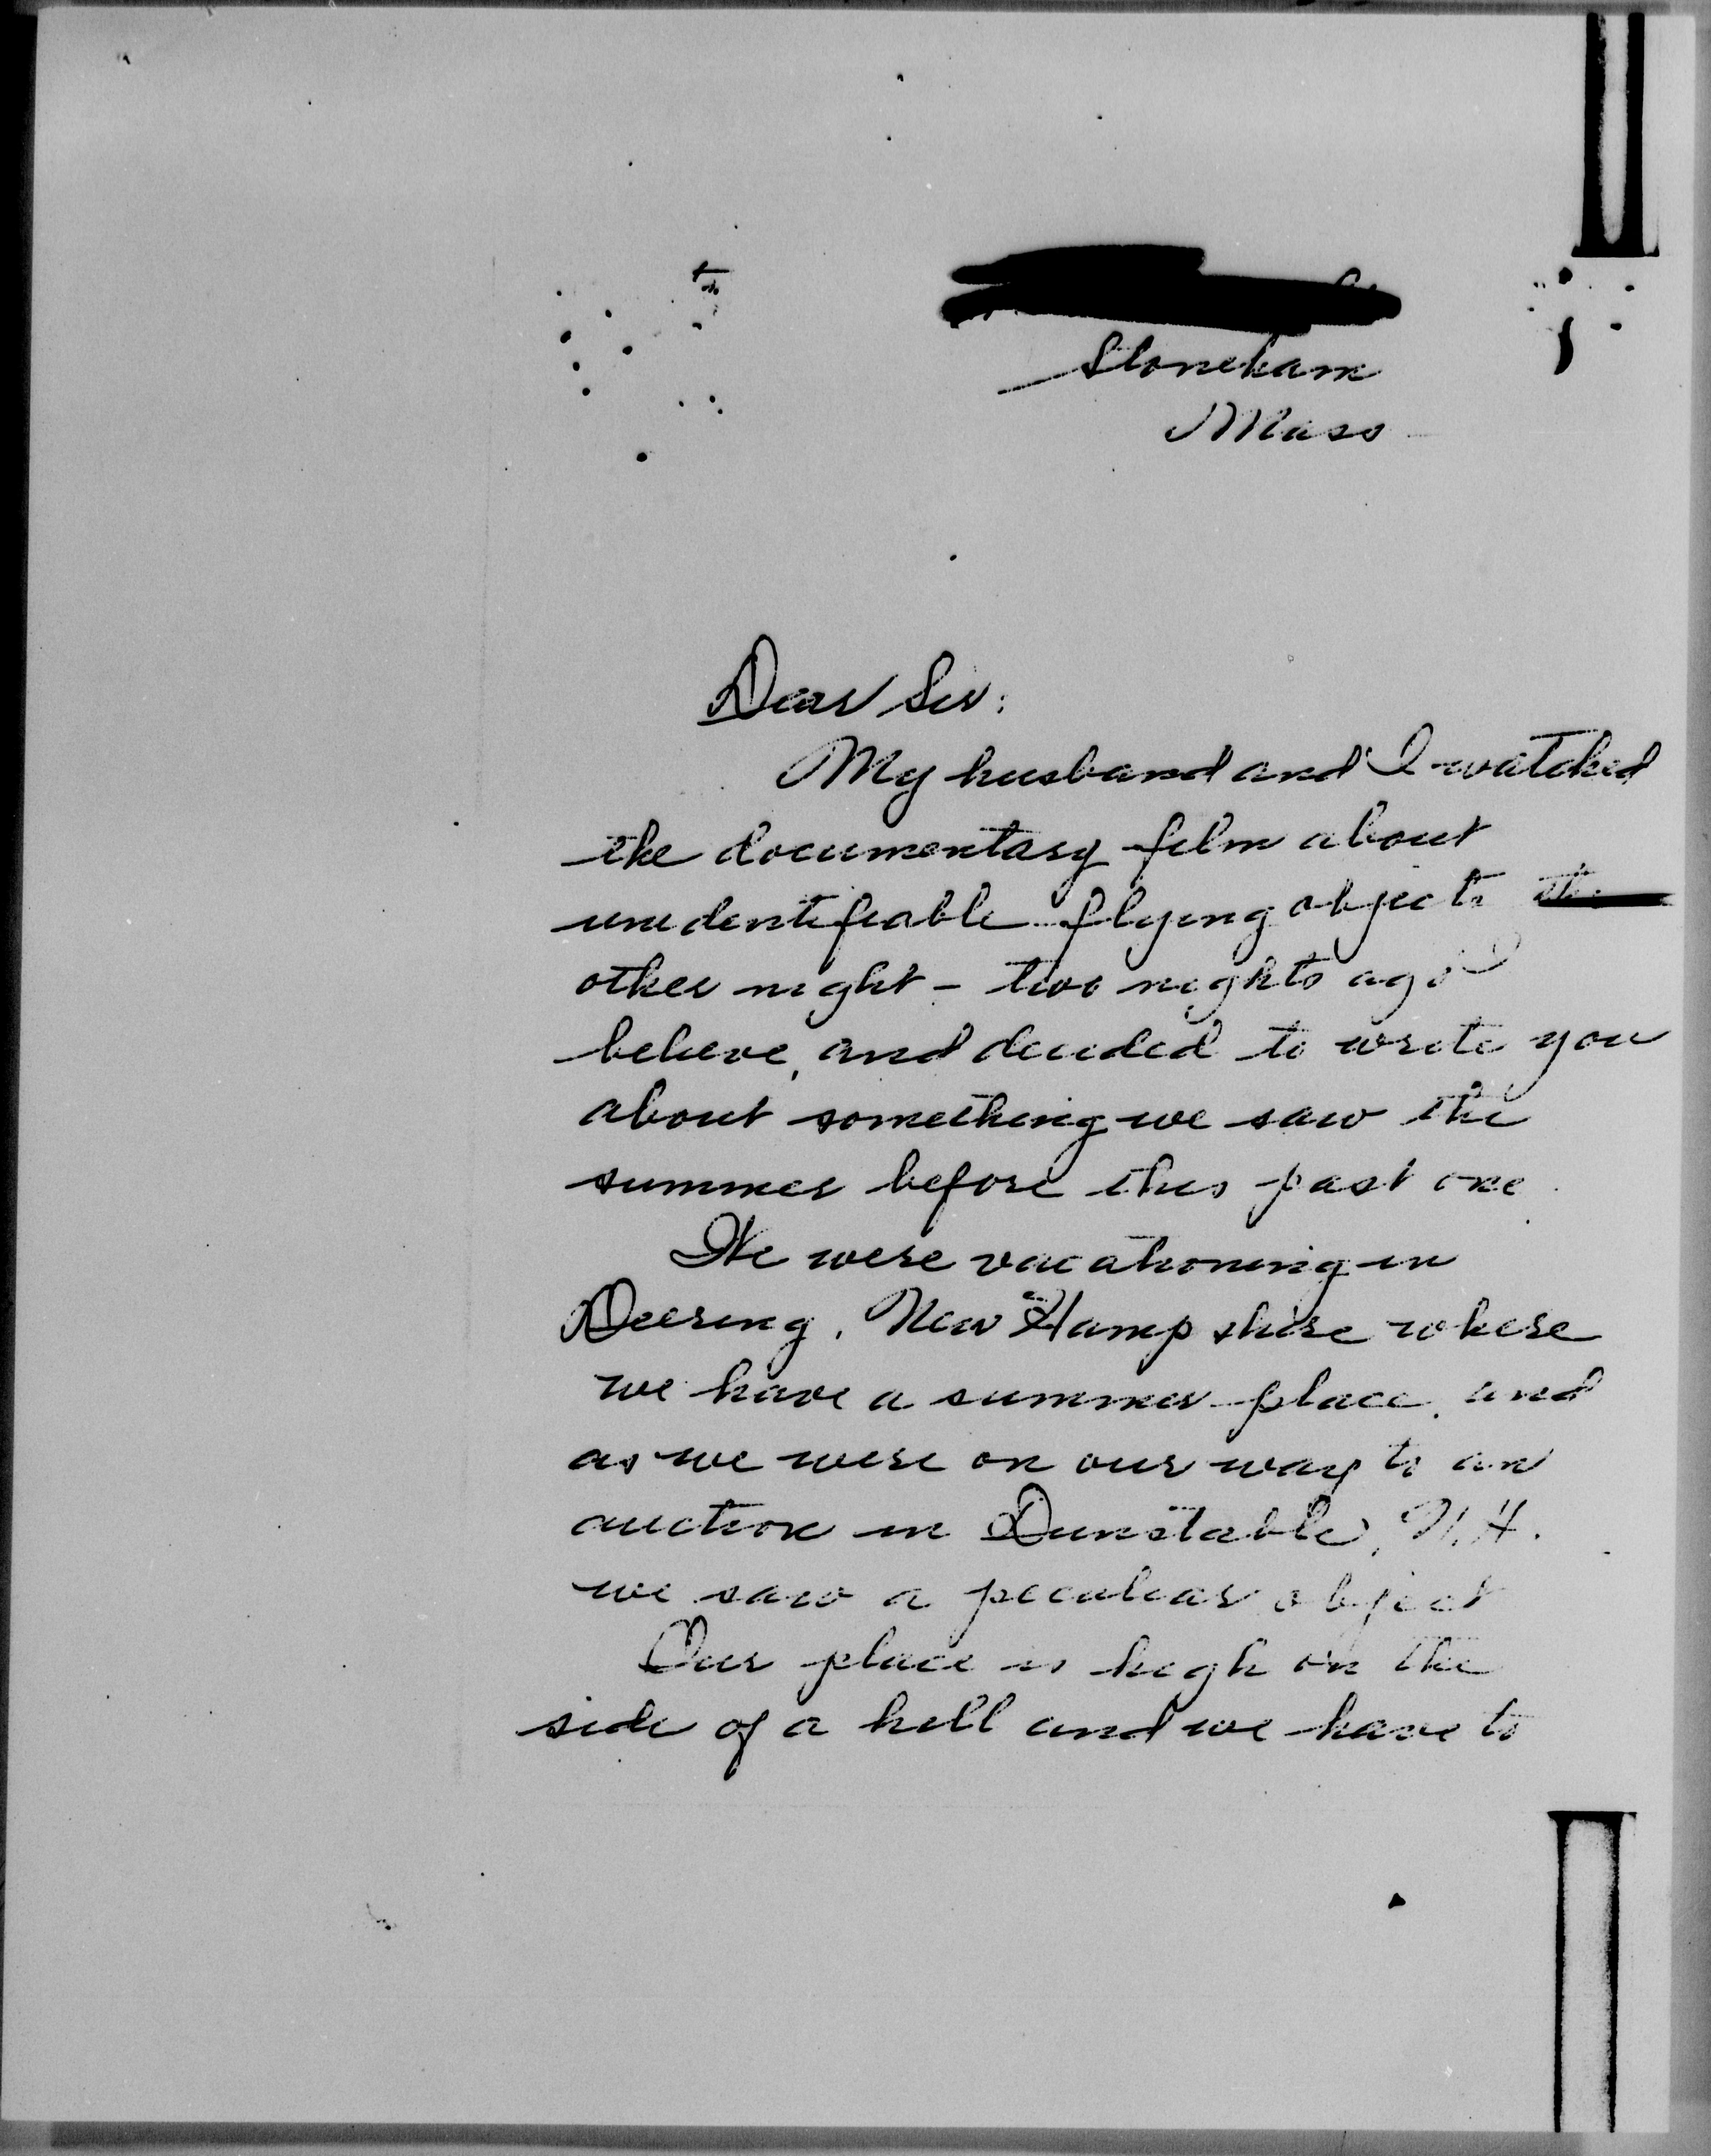 Stoneham
Mass
Dear Sir:
My husband and I watched
the documentary film about
unidentifiable flying objects the
other night - two nights ago I
believe, and decided to write you
about something we saw the
summer before this past one.
We were vacationing in
Deering, New Hampshire where
we have a summer place, and
as we were on our way to an
auction in Dunstable, N.H.
we saw a peculiar object
Our place is high on the
side of a hill and we have to